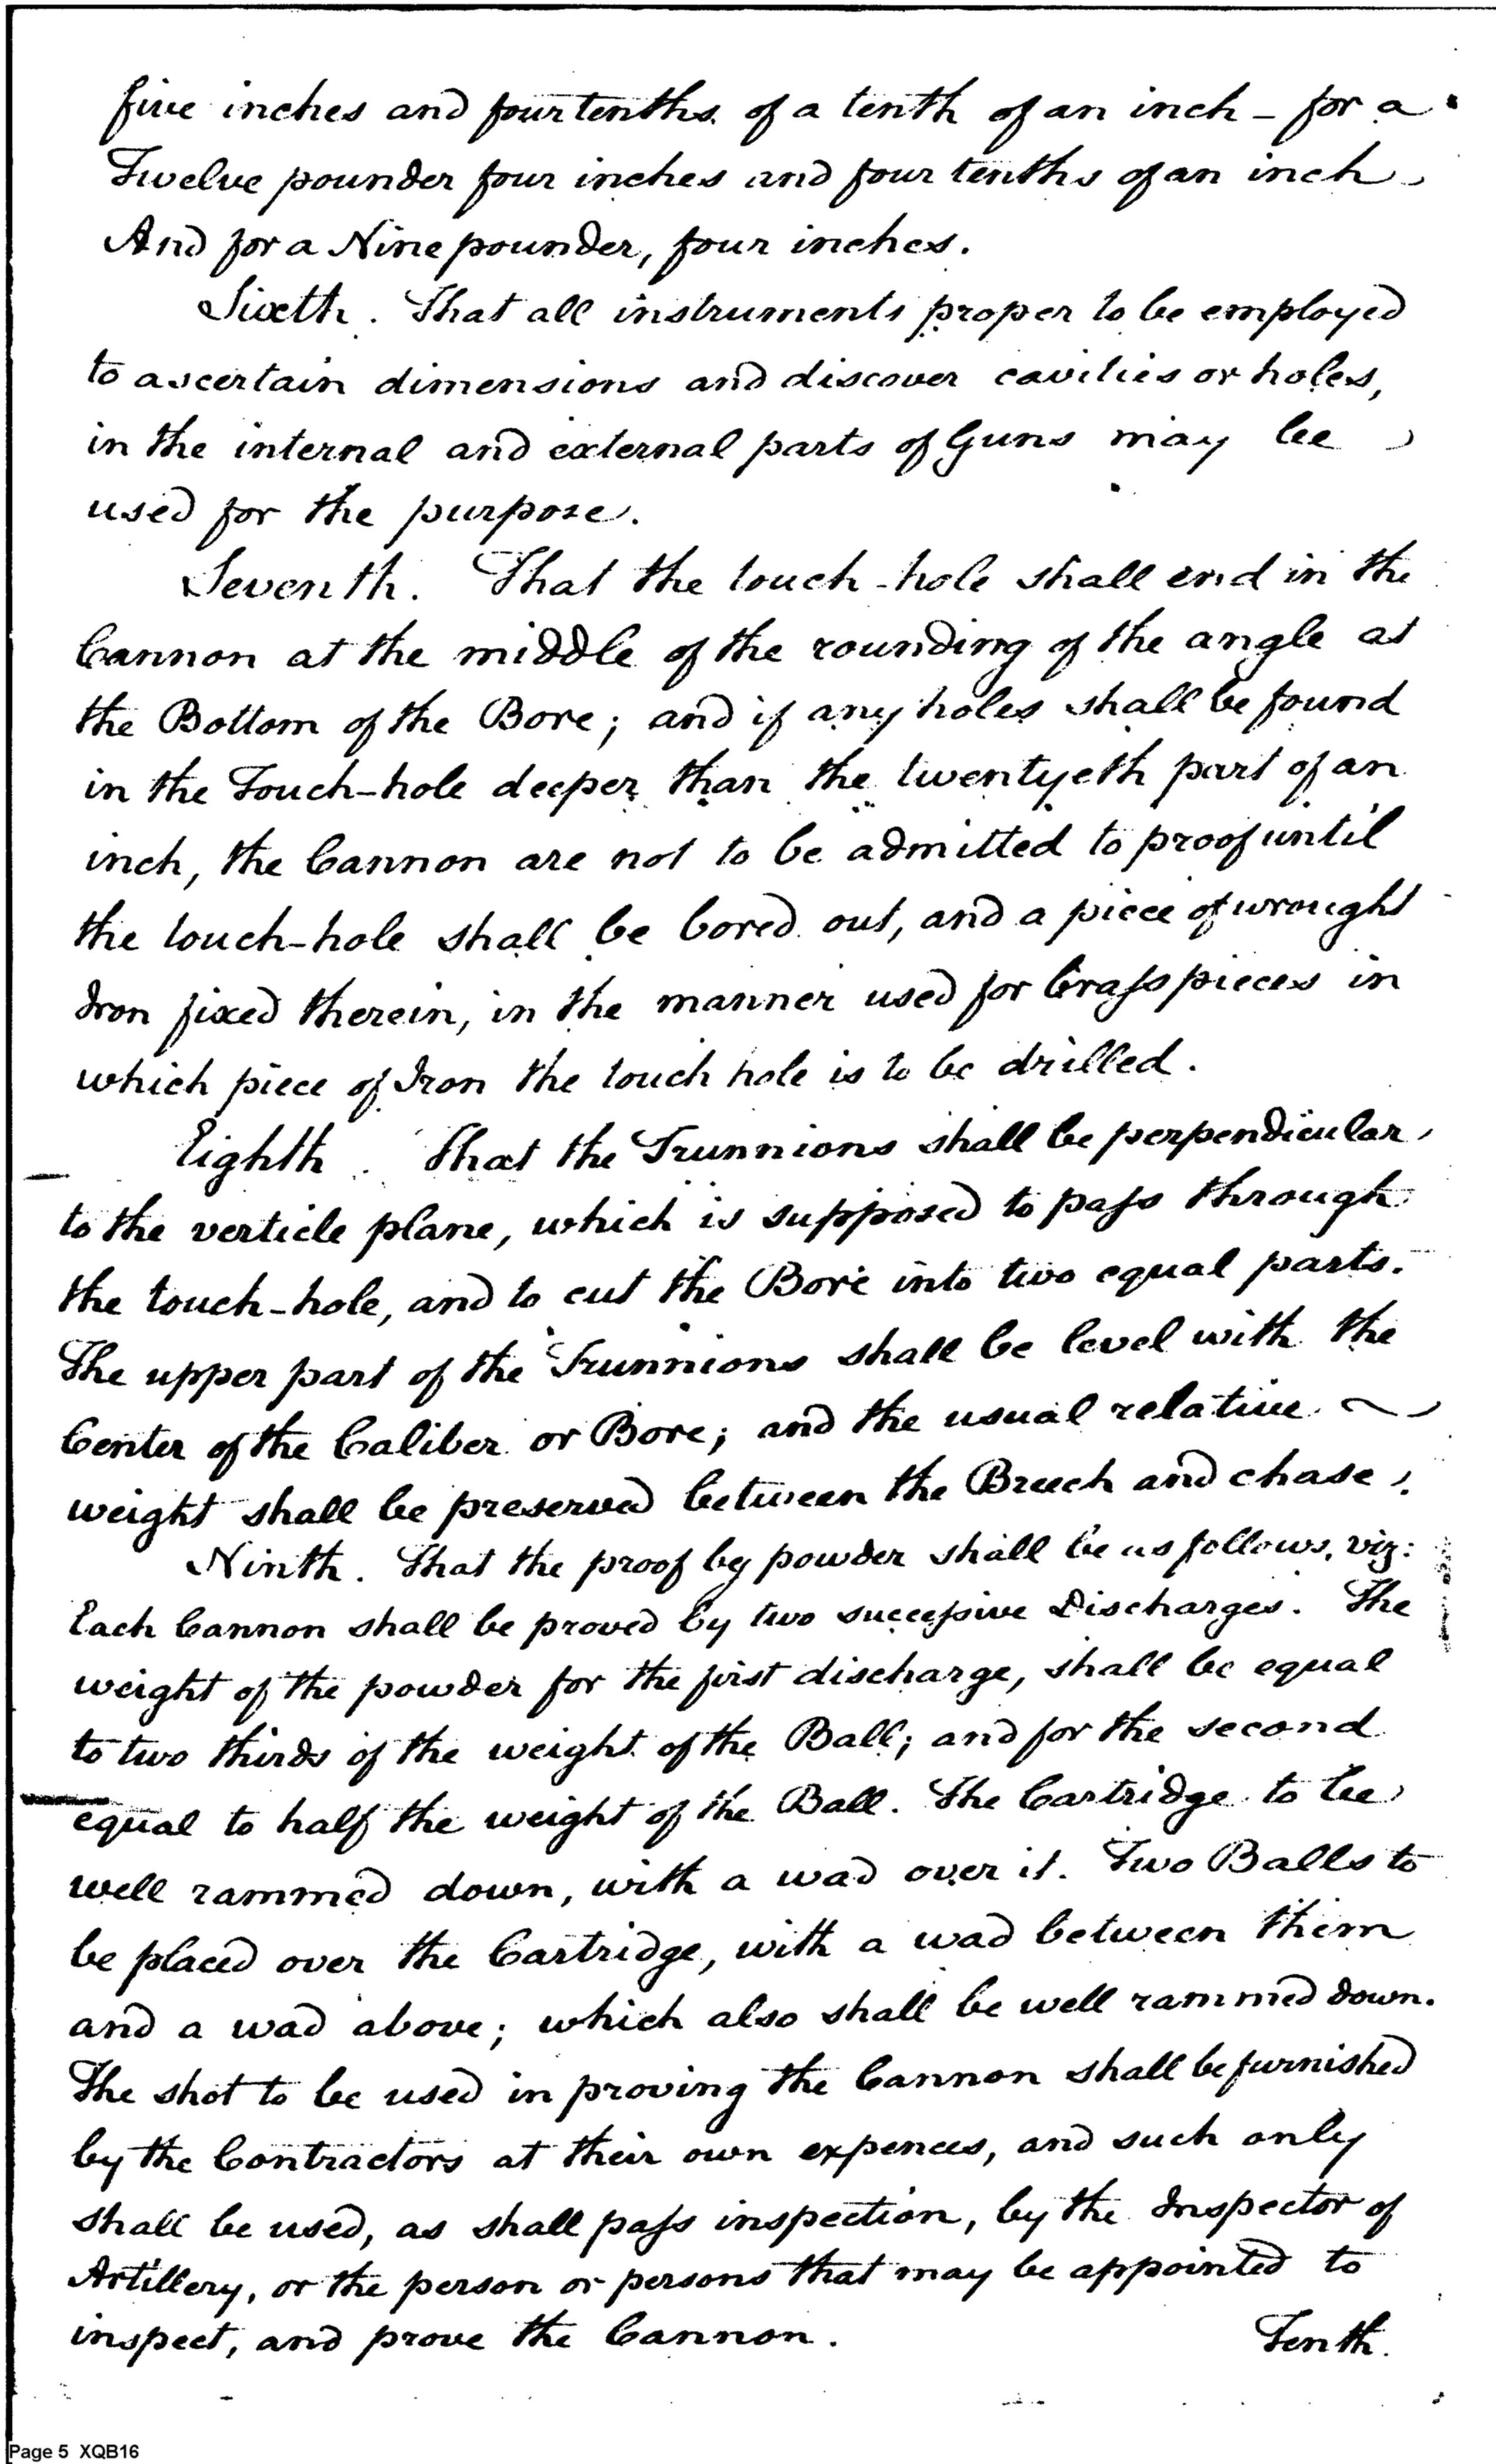 five inches and four tenths of a tenth of an inch – for a
Twelve pounder four inches and four tenths of an inch
And for a Nine pounder, four inches.
Sixth. That all instruments proper to be employed
to ascertain dimensions and discover cavities or holes,
in the internal and external parts of Guns may be
used for the purpose.
Seventh. That the touch-hole shall end in the
Cannon at the middle of the rounding of the angle at
the Bottom of the Bore; and if any holes shall be found
in the Touch-hole deeper than the twentyeth part of an
inch, the Cannon are not to be admitted to proof until
the touch-hole shall be bored out, and a piece of wrought
Iron fixed therein, in the manner used for brass pieces in
which piece of Iron the touch hole is to be drilled.
Eighth. That the Trunnions shall be perpendicular
to the verticle plane, which is supposed to pass through
the touch-hole, and to cut the Bore into two equal parts.
The upper part of the Trunnions shall be level with the
Center of the Caliber or Bore; and the usual relative
weight shall be preserved between the Breech and chase.
Ninth. That the proof by powder shall be as follows, viz:
Each Cannon shall be proved by two successive Discharges. The
weight of the powder for the first discharge, shall be equal
to two thirds of the weight of the Ball; and for the second
equal to half the weight of the Ball. The Cartridge to be
well rammed down, with a wad over it. Two Balls to
be placed over the Cartridge, with a wad between them
and a wad above; which also shall be well rammed down.
The shot to be used in proving the Cannon shall be furnished
by the Contractors at their own expences, and such only
shall be used, as shall pass inspection, by the Inspector of
Artillery, or the person or persons that may be appointed to
inspect, and prove the Cannon.
Tenth.
Page 5 XQB16